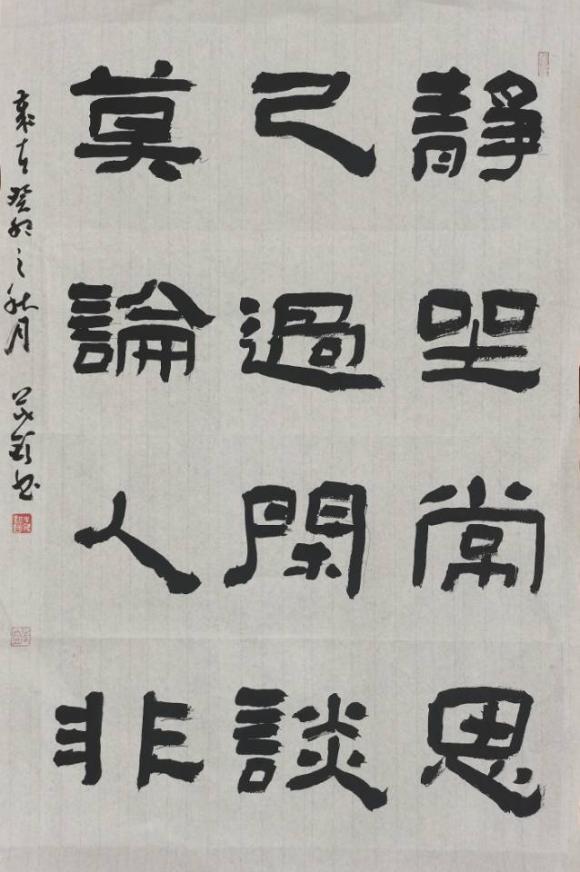 靜坐常思
己過閑談
莫論人非
歲在癸卯之秋月 書